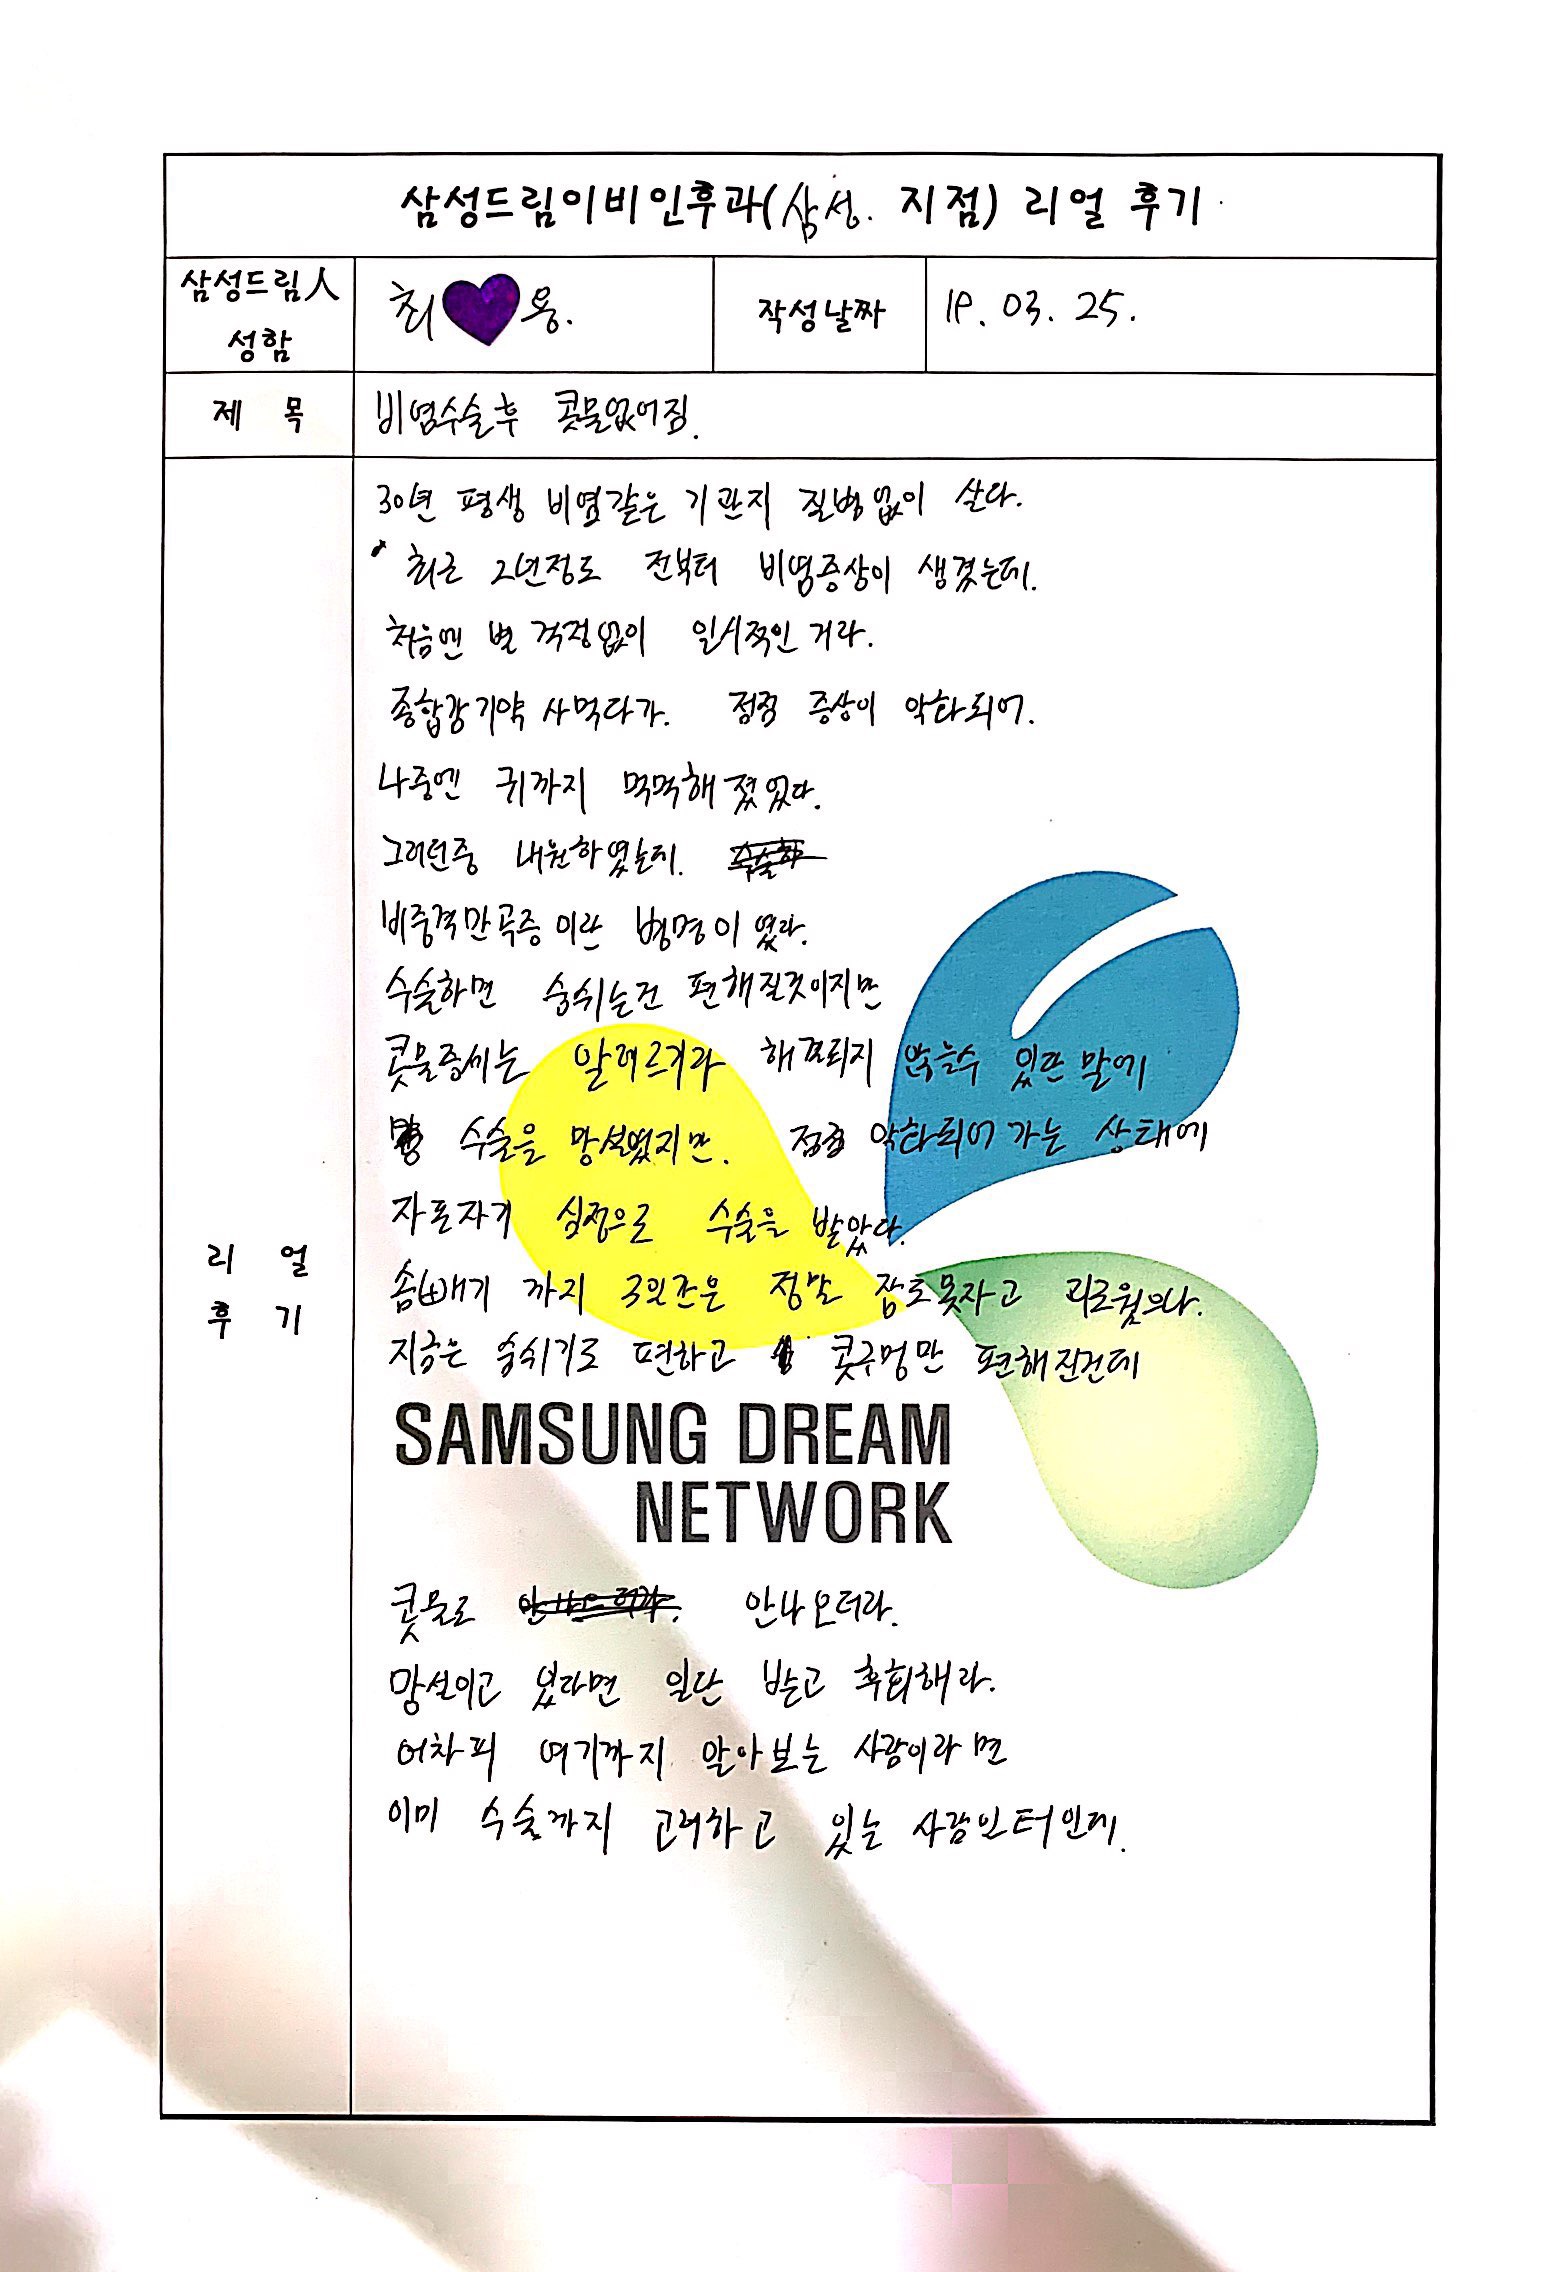 삼성드림이비인후과(삼성. 지점) 리얼 후기
삼성드림人
성함
최 용.
작성날짜
19. 03. 25.
제 목
비염수술후 콧물없어짐.
30년 평생 비염같은 기관지 질병없이 살다.
최근 2년정도 전부터 비염증상이 생겼는데.
처음엔 별 걱정없이 일시적인 거라.
종합감기약 사먹다가. 점점 증상이 악화되어.
나중엔 귀까지 먹먹해 졌었다.
그러던중 내원하였는데.
비중격만곡증 이란 병명이 였다.
수술하면 숨쉬는건 편해질것이지만
콧물증세는 알레르기라 해결되지 않을수 있단 말에
수술을 망설였지만. 점점 악화되어 가는 상태에
자포자기 심정으로 수술을 받았다.
솜빼기 까지 3일간은 정말 잠도못자고 괴로웠으나.
지금은 숨쉬기도 편하고 콧구멍만 편해진건데
리 얼
후 기
SAMSUNG DREAM
NETWORK
콧물도 안나오더라.
망설이고 있다면 일단 받고 후회해라.
어차피 여기까지 알아보는 사람이라면
이미 수술까지 고려하고 있는 사람일터인데.